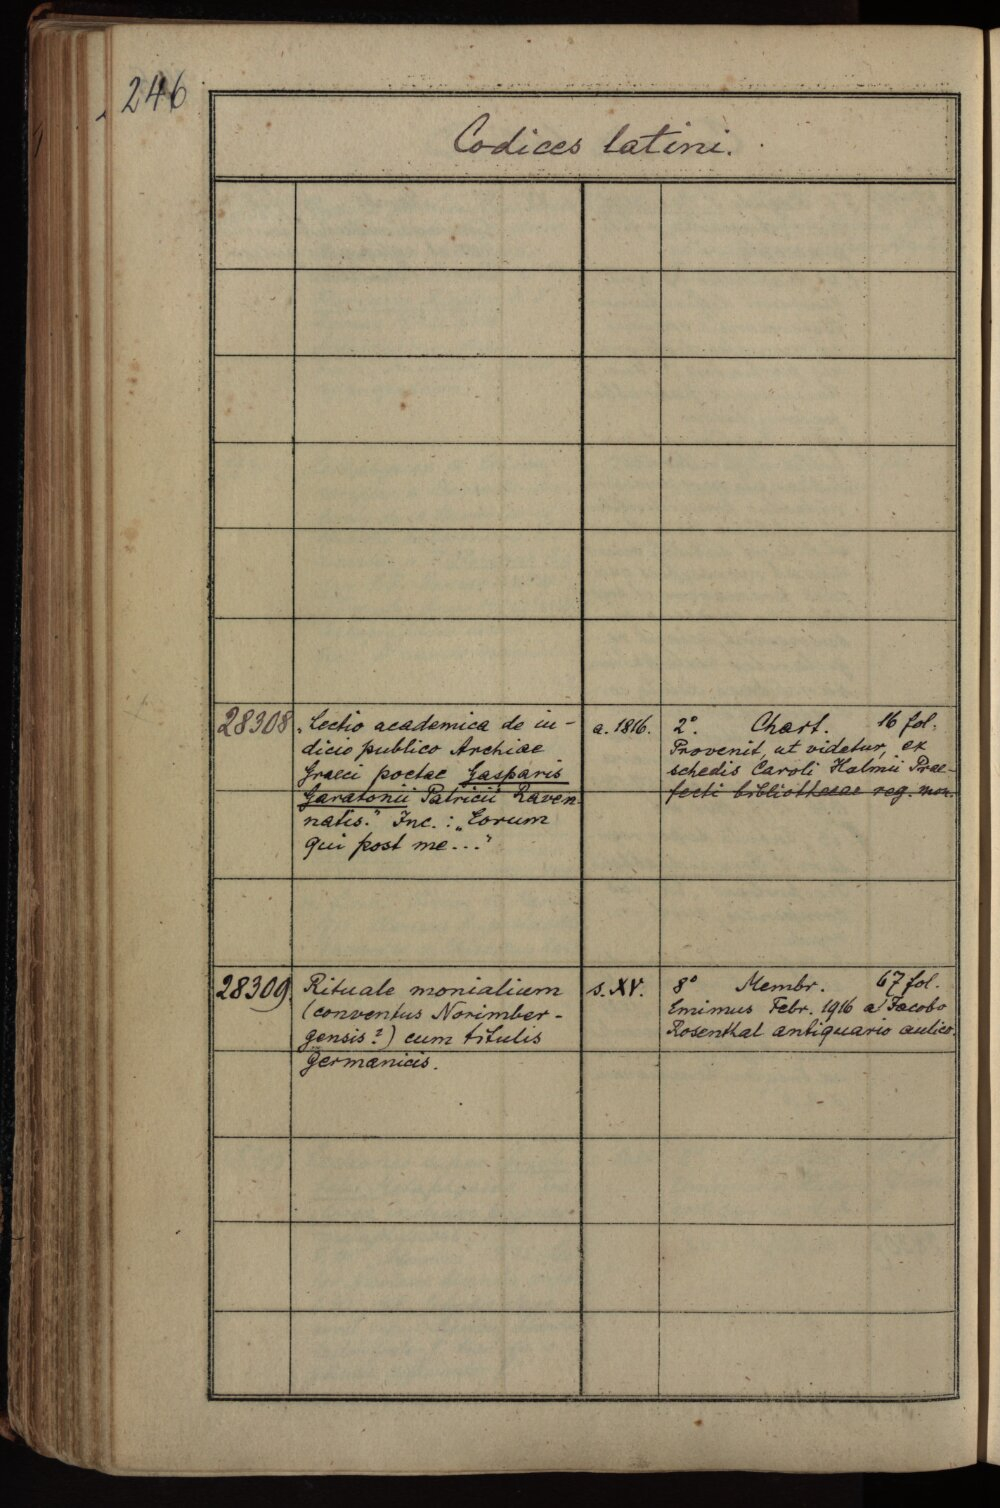 246
Codices latini.
28308 „Lectio academica de iu- a. 1816. 2°. Chart. 16 fol.
dicio publico Archiae Provenit, ut videtur, ex
Graeci poetae Gasparis schedis Caroli Halmii Prae-
Garatonii Patricii Raven- fecti bibliothecae reg. mon.
natis." Inc.: „Eorum
qui post me..."
28309. Rituale monialium s. XV. 8° Membr. 67 fol.
(conventus Norimber- Emimus Febr. 1916 a Jacobo
gensis?) cum titulis Rosenthal antiquario aulico.
germanicis.